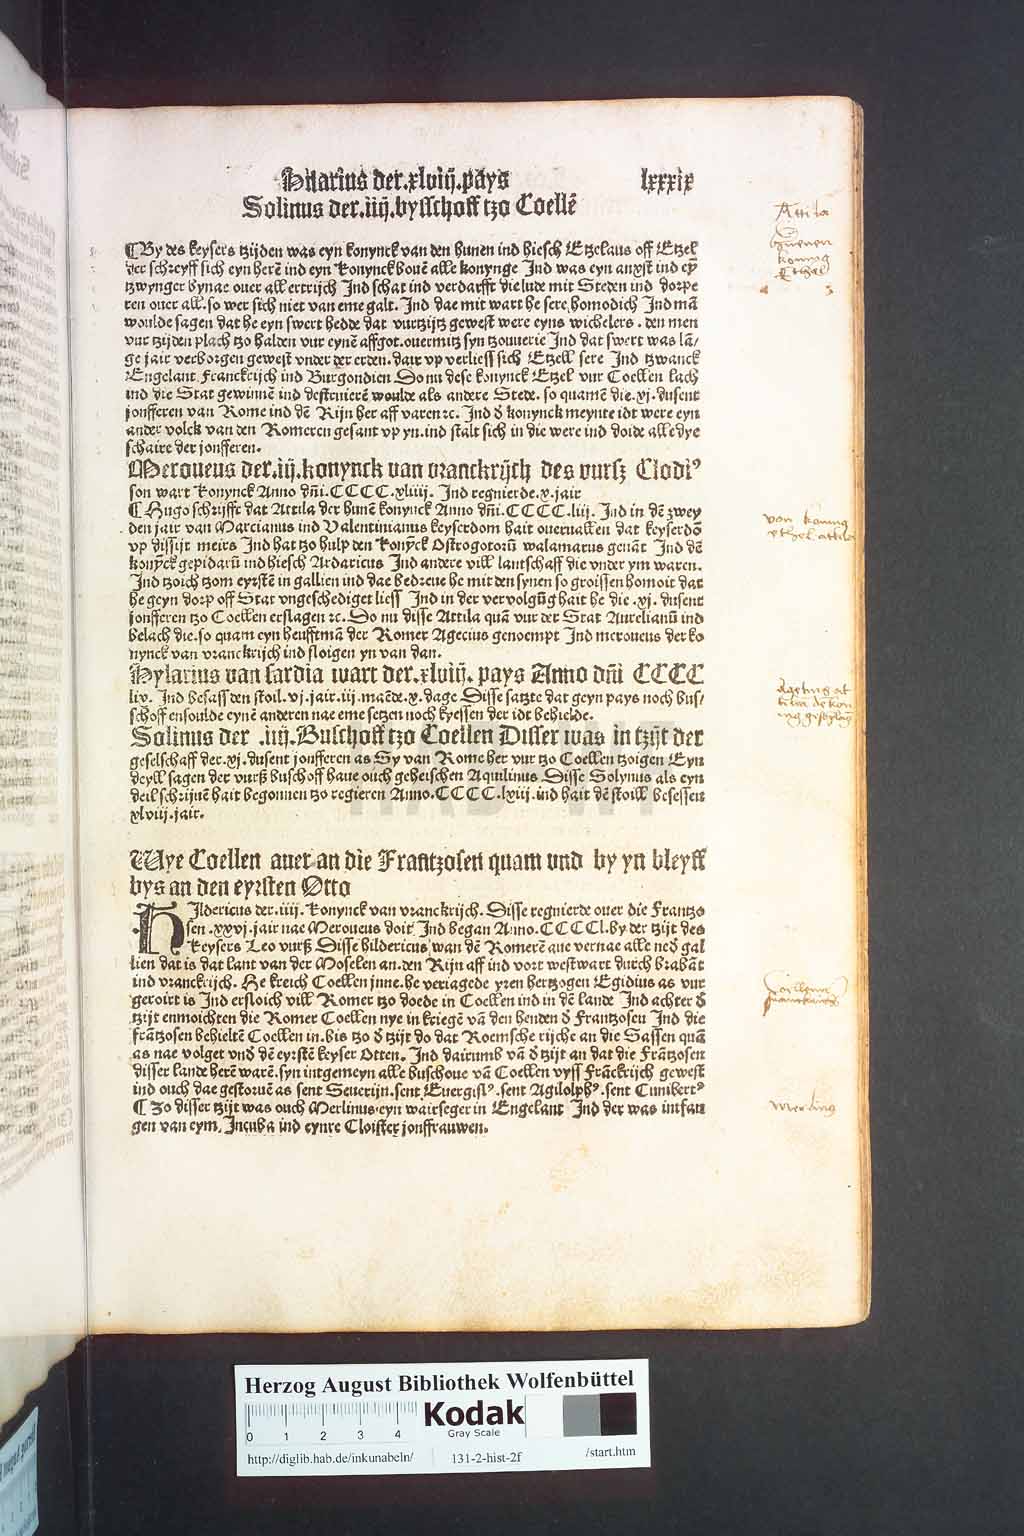 Hilarius der.xlviij.pays lxxxix
Solinus der.iiij.bysschoff tzo Coellē
¶By des keysers tzijden was eyn konynck van den hunen ind hiesch Etzelaus off Etzel
der schreyff sich eyn herē ind eyn Konynck bouē alle konynge Ind was eyn anxst ind eȳ
tzwynger bynae ouer all ertrijch Ind schat ind verdarfft die lude mit Steden ind dorpe
ren ouer all. so wer sich niet van eme galt. Ind dae mit wart he sere homodich Ind mā
woulde sagen dat he eyn swert hedde dat vurtzijtz gewest were eyns wichelers. den men
vur tzijden plach tzo halden vur eynē affgot.ouermitz syn tzouuerie Ind dat swert was lā/
ge jair verborgen gewest vnder der erden. dair vp verliess sich Etzell sere Ind tzwanck
Engelant Franckrijch ind Burgondien Do nu dese konynck Etzel vur Coellen lach
ind die Stat gewinnē ind destruierē woulde als andere Stede. so quamē die.xj.dusent
jonfferen van Rome ind dē Rijn her aff varen ⁊c. Ind d̄ konynck meynte idt were eyn
ander volck van den Romeren gesant vp yn.ind stalt sich in die were ind doide alle dye
schaire der jonfferen.
Meroueus der.iij.konynck van vranckrijch des vursz Clodiꝰ
son wart Konynck Anno dn̄i.CCCC.xliiij. Ind regnierde.x.jair
¶Hugo schrijfft dat Attila der hunē konynck Anno dn̄i.CCCC.liij. Ind in dē zwey
den jair van Marcianus ind Valentinianus keyserdom hait oueruallen dat keyserdō
vp dissijt meirs Ind hat tzo hulp den Konȳck Ostrogotorū walamarus genāt Ind dē
konȳck gepidarū ind hiesch Ardaricus Ind andere vill lantschaff die vnder ym waren.
Ind tzoich tzom eyrstē in gallien ind dae bedreue he mit den synen so groissen homoit dat
he geyn dorp off Stat vngeschediget liess Ind in der vervolgūg hait he die.xj.dusent
jonfferen tzo Coellen erslagen ⁊c. Do nu disse Attila quā vur der Stat Aurelianū ind
belach die.so quam eyn heufftmā der Romer Agecius genoempt Ind meroueus der ko
nynck van vranckrijch ind sloigen yn van dan.
Hylarius van sardia wart der.xlviij. pays Anno dn̄i CCCC
lix. Ind besass den stoil.vj.jair.iij.maēde.x.dage Disse satzte dat geyn pays noch bus/
schoff ensoulde eynē anderen nae eme setzen noch kyesen der idt behielde.
Solinus der .iiij.Buschoff tzo Coellen Disser was in tzijt der
geselschaff der.xj.dusent jonfferen as Sy van Rome her vur tzo Coellen tzoigen Eyn
deyll sagen der vurß buschoff haue ouch geheischen Aquilinus Disse Solynus als eyn
deil schrijuē hait begonnen tzo regieren Anno.CCCC.lxiij.ind hait dē stoill besessen
xlviij.jair.
Wye Coellen auer an die Frantzosen quam vnd by yn bleyff
bys an den eyrsten Otto
Hildericus der.iiij.Konynck van vranckrijch. Disse regnierde ouer die Frantzo
sen .xxvj.jair nae Meroueus doit Ind began Anno.CCCCl.by der tzijt des
Keysers Leo vurß Disse hildericus wan dē Romerē aue vernae alle ned̄ gal
lien dat is dat lant van der Moselen an.den Rijn aff ind vort westwart durch brabāt
ind vranckrijch. He kreich Coellen jnne.he veriagede yren hertzogen Egidius as vur
geroirt is Ind ersloich vill Romer tzo doede in Coellen ind in dē lande Ind achter d̄
tzijt enmoichten die Romer Coellen nye in kriegē vā den henden d̄ Frantzosen Ind die
frātzosen behieltē Coellen in.bis tzo d̄ tzijt do dat Roemsche rijche an die Sassen quā
as nae volget vnd̄ dē eyrstē keyser Otten. Ind dairumb vā d̄ tzijt an dat die Frātzosen
disser lande herē warē.syn intgemeyn alle buschoue vā Coellen vyss Frāckrijch gewest
ind ouch dae gestoruē as sent Seuerijn.sent Euergislꝰ.sent Agilolphꝰ.sent Cunibertꝰ
¶Tzo disser tzijt was ouch Merlinus eyn wairseger in Engelant Ind der was intfan
gen van eym, Incuba ind eynre Cloister jonffrauwen.
Attila
konnig
Ethel
von konnig
ethel attila
Merling
Herzog August Bibliothek Wolfenbüttel
0 1 2 3 4
Kodak
Gray Scale
http://diglib.hab.de/inkunabeln/ 131-2-hist-2f /start.htm